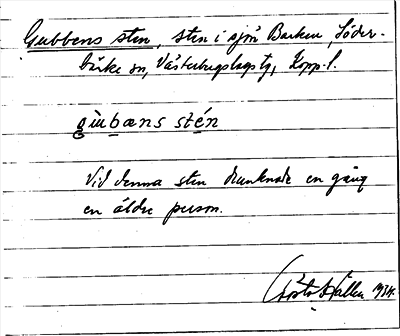 Gubbens sten, sten i sjön Barken, Söder-
bärke sn, Västerbergslags tg, Kopp. l.
gubæns stén
Vid denna sten drunknade en gång
en äldre person.
Gösta Källen 1934.